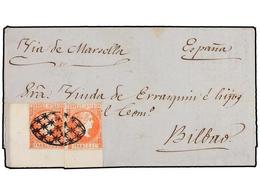 Via de Marsella
España
Sra. Viuda de Errazquin é hijos
del Comº
Bilbao